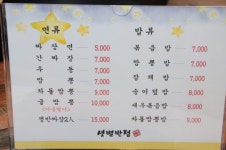 면류
짜장면 5,000
간짜장 7,000
우동 7,000
짬뽕 7,000
차돌짬뽕 9,000
굴짬뽕 10,000
쟁반짜장2人 15,000
밥류
볶음밥 7,000
짬뽕밥 7,000
잡채밥 7,000
송이덮밥 8,000
새우볶음밥 8,000
차돌짬뽕밥 9,000
샛별반점